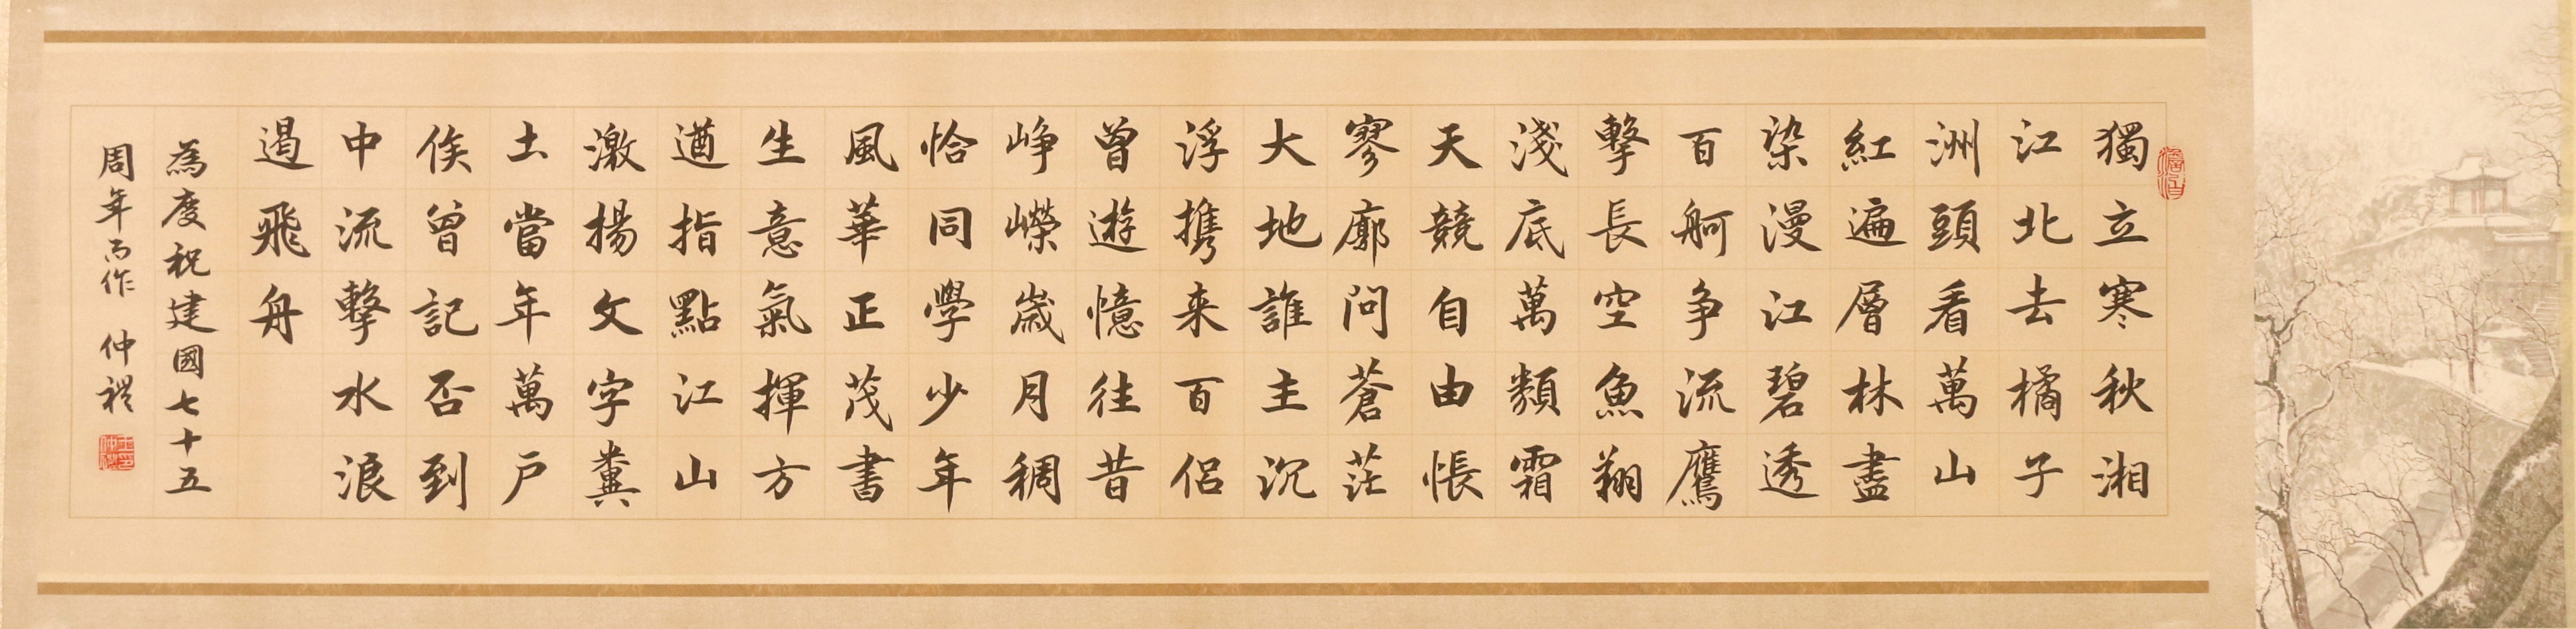 獨立寒秋湘
江北去橘子
洲頭看萬山
紅遍層林盡
染漫江碧透
百舸争流鷹
擊長空魚翔
淺底萬類霜
天競自由悵
寥廓問蒼茫
大地誰主沉
浮攜来百侶
曾遊憶往昔
峥嶸崴月稠
恰同學少年
風華正茂書
生意氣揮方
遒指點江山
激揚文字糞
土當年萬户
侯曾記否到
中流擊水浪
遏飛舟
為慶祝建國七十五
周年而作 仲禮